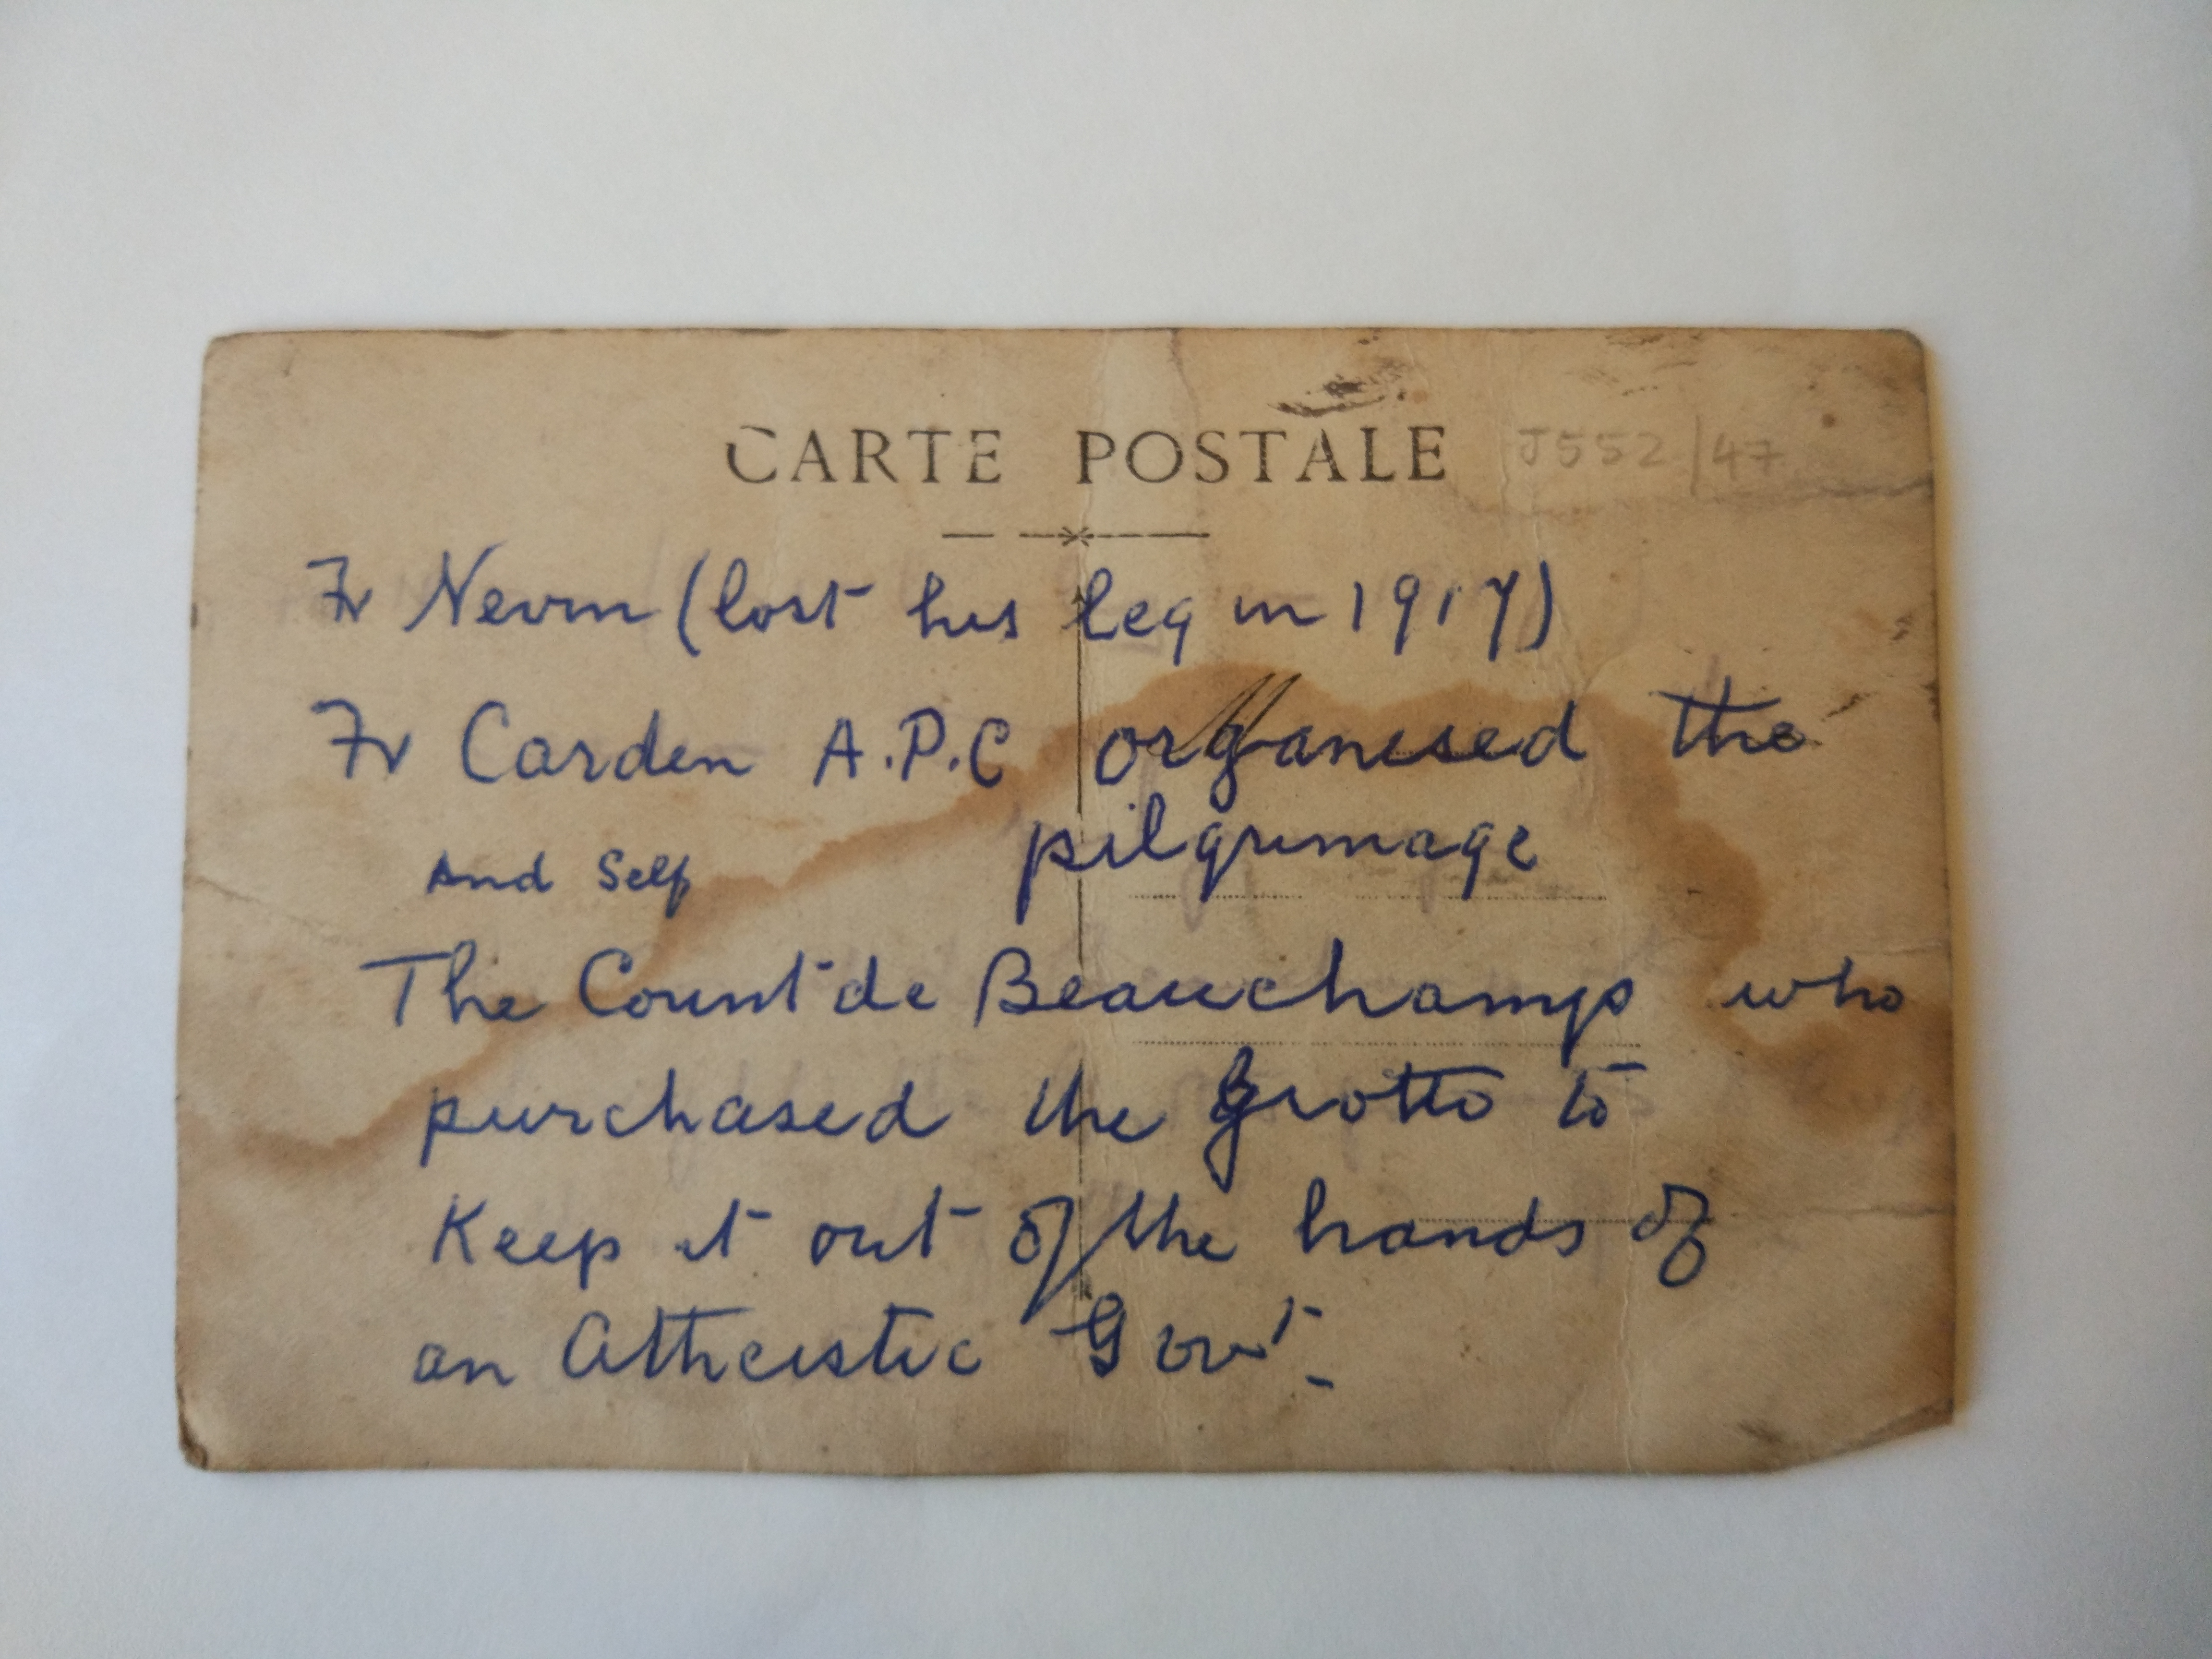 CARTE POSTALE J552/47
Fr Nevin (lost his leg in 1917)
Fr Carden A.P.C organised the
pilgrimage
And Self
The Count de Beauchamps who
purchased the Grotto to
Keep it out of the hands of
an Atheistic Govt.